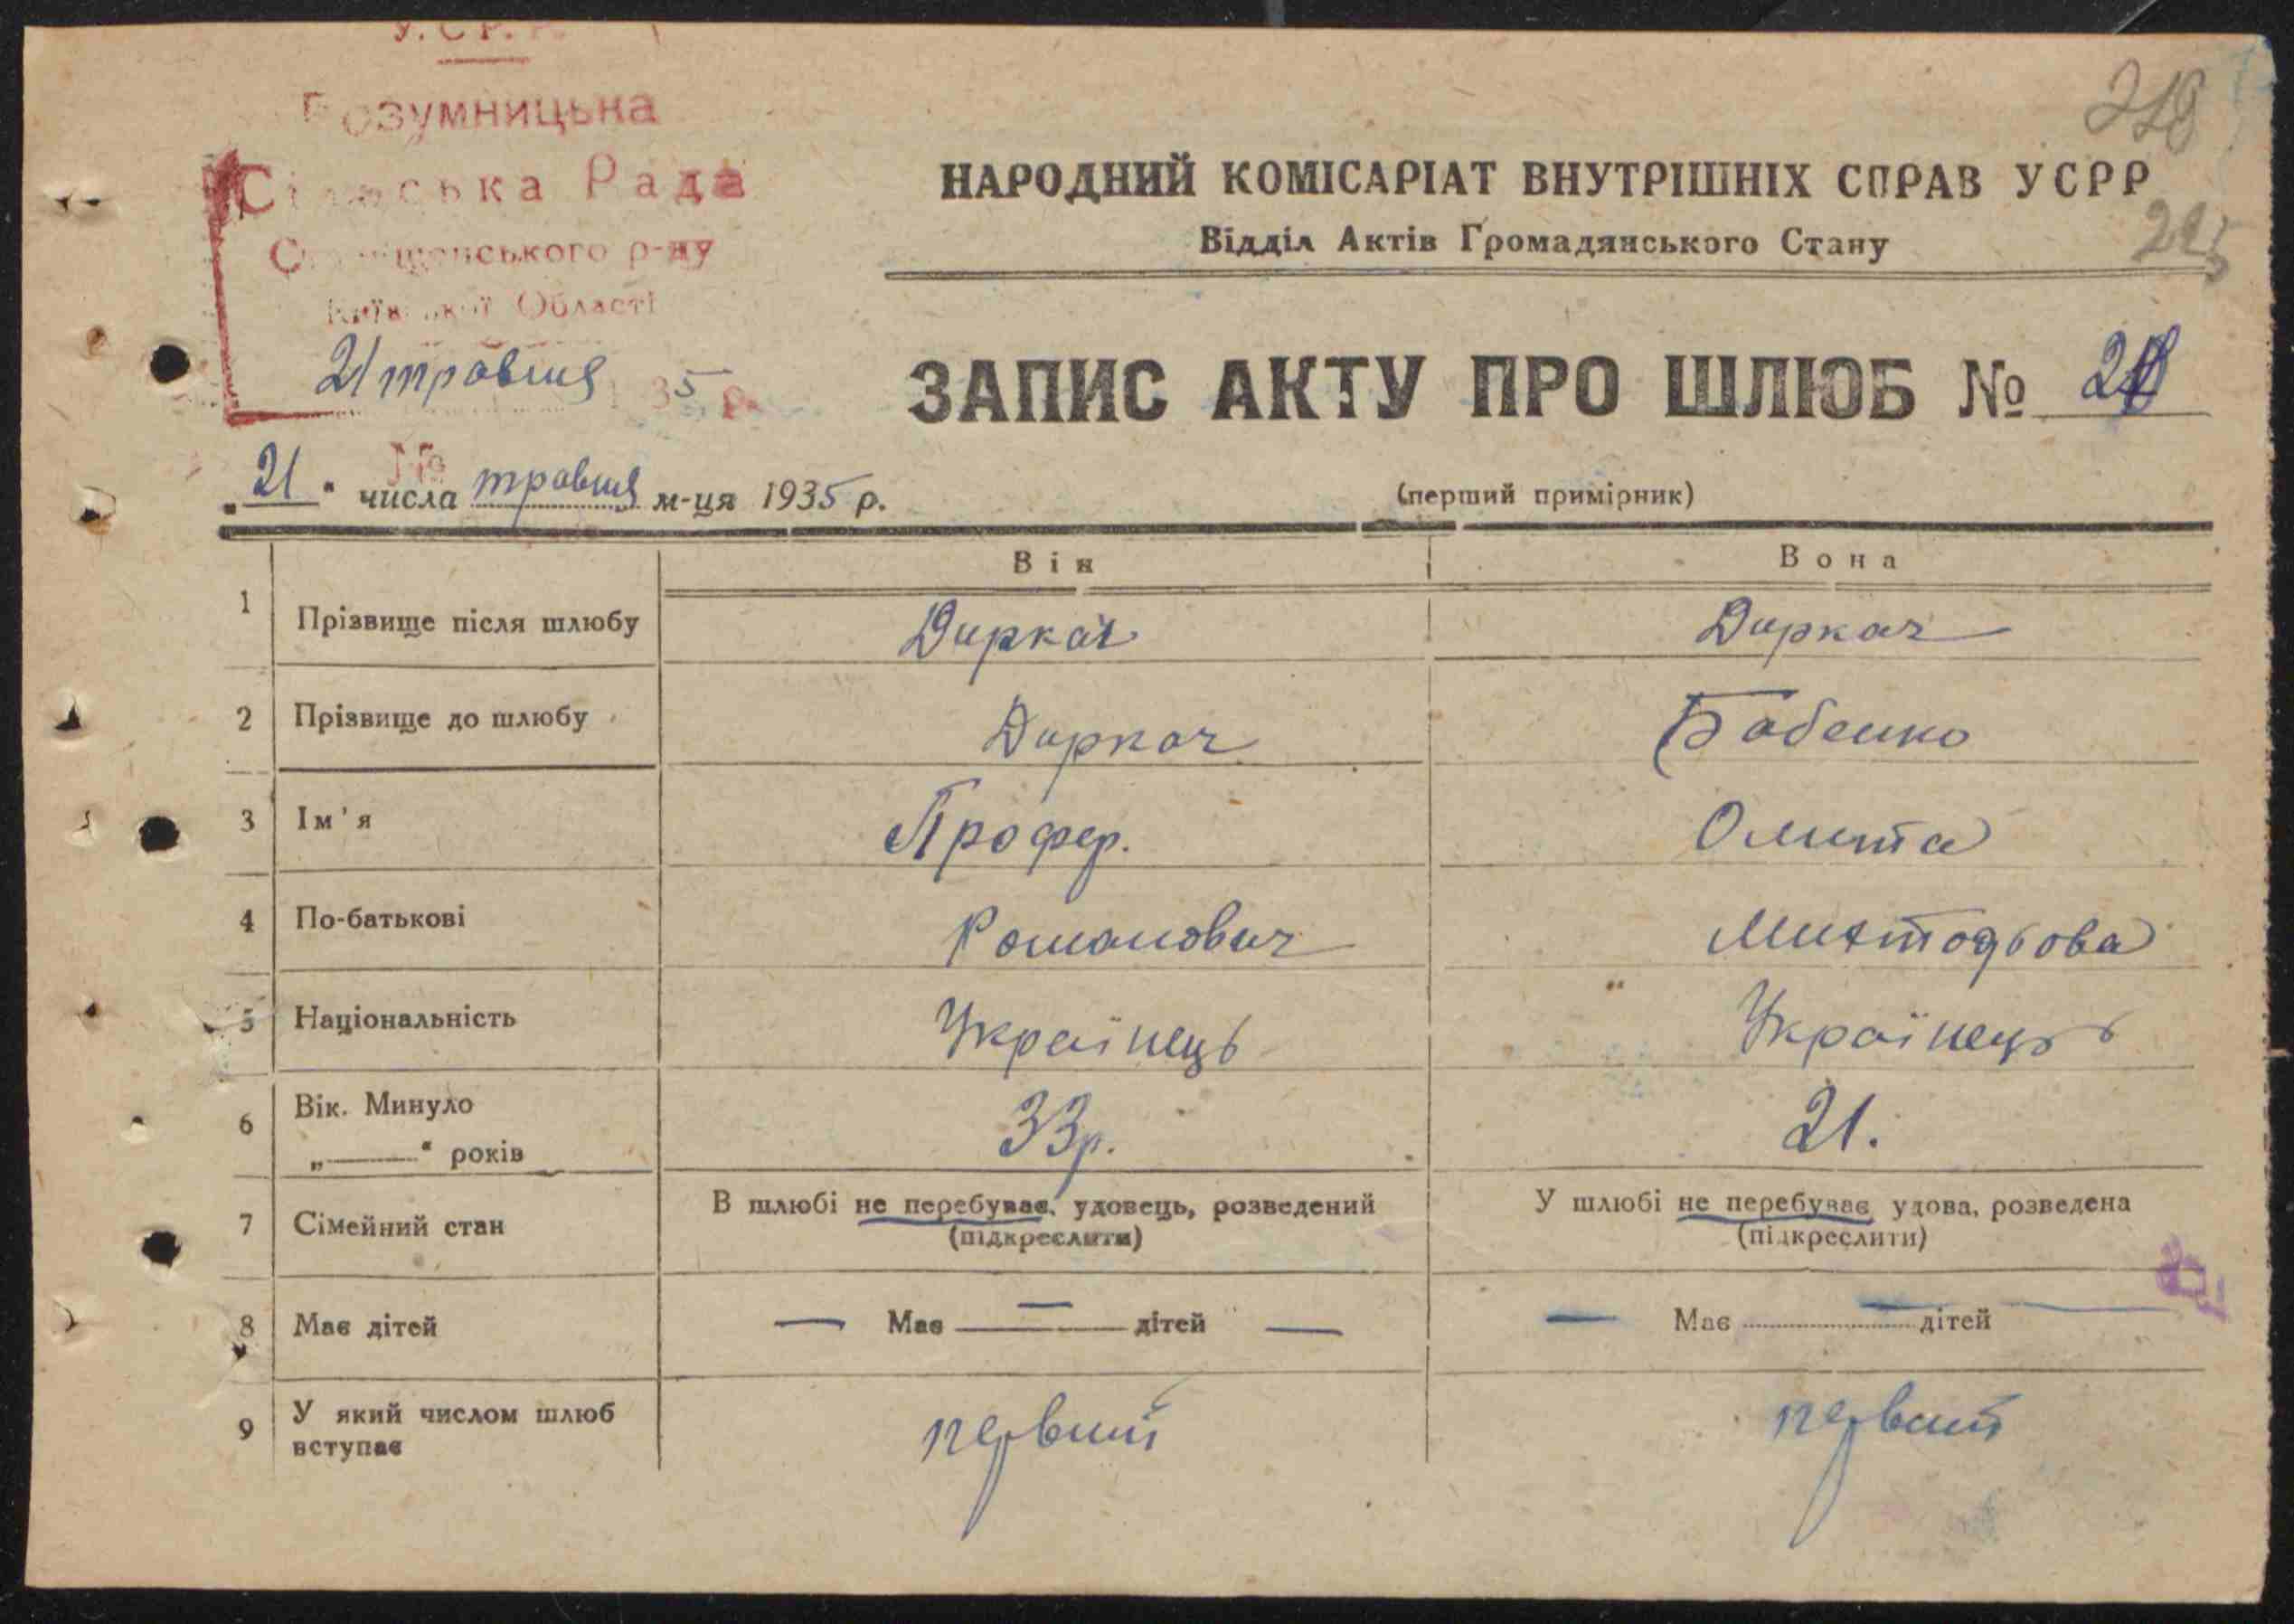 У.СР.Р.
Розумницька
Сільська Рада
Ставищенського р-ну
Київської Області
21 травня 1935 р.
№
218
225
НАРОДНИЙ КОМІСАРІАТ ВНУТРІШНІХ СПРАВ УСРР
Відділ Актів Громадянського Стану
ЗАПИС АКТУ ПРО ШЛЮБ №
„21" числа травня м-ця 1935 р.
(перший примірник)
Він Вона
1 Прізвище після шлюбу Диркач Диркач
2 Прізвище до шлюбу Диркач Бабенко
3 Ім'я Профер. Олита
4 По-батькові Романович
5 Національність Українець Українець
6 Вік. Минуло „——" років 33р. 21.
7 Сімейний стан В шлюбі не перебуває, удовець, розведений (підкреслити) У шлюбі не перебуває, удова, розведена (підкреслити)
8 Має дітей — Має — дітей — — Має — дітей —
9 У який числом шлюб вступає первий первий